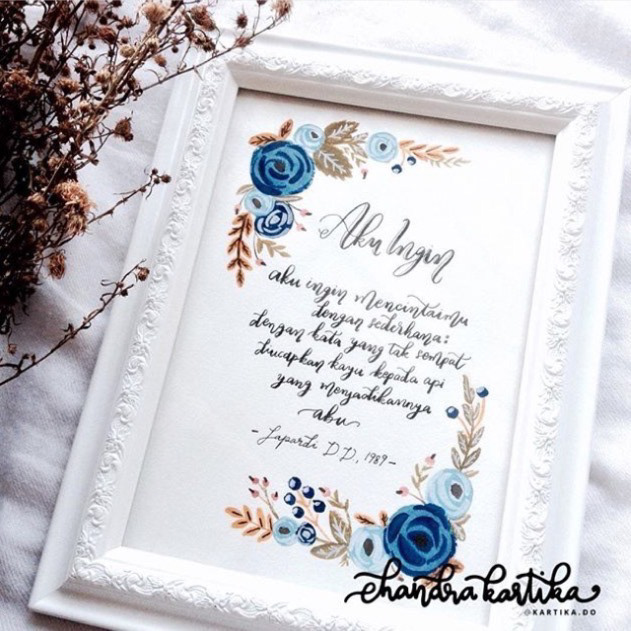 Aku Ingin
aku ingin mencintaimu
dengan sederhana:
dengan kata yang tak sempat
diucapkan kayu kepada api
yang menjadikannya
abu
- Sapardi D.D, 1989 -
chandra kartika
@KARTIKA.DO